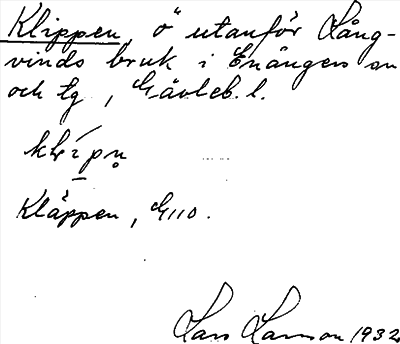 Klippen, ö utanför Lång-
vinds bruk i Enångers sn
och tg, Gävleb. l.
klípn̥
Kläppen, G110.
Lars Larsson 1932